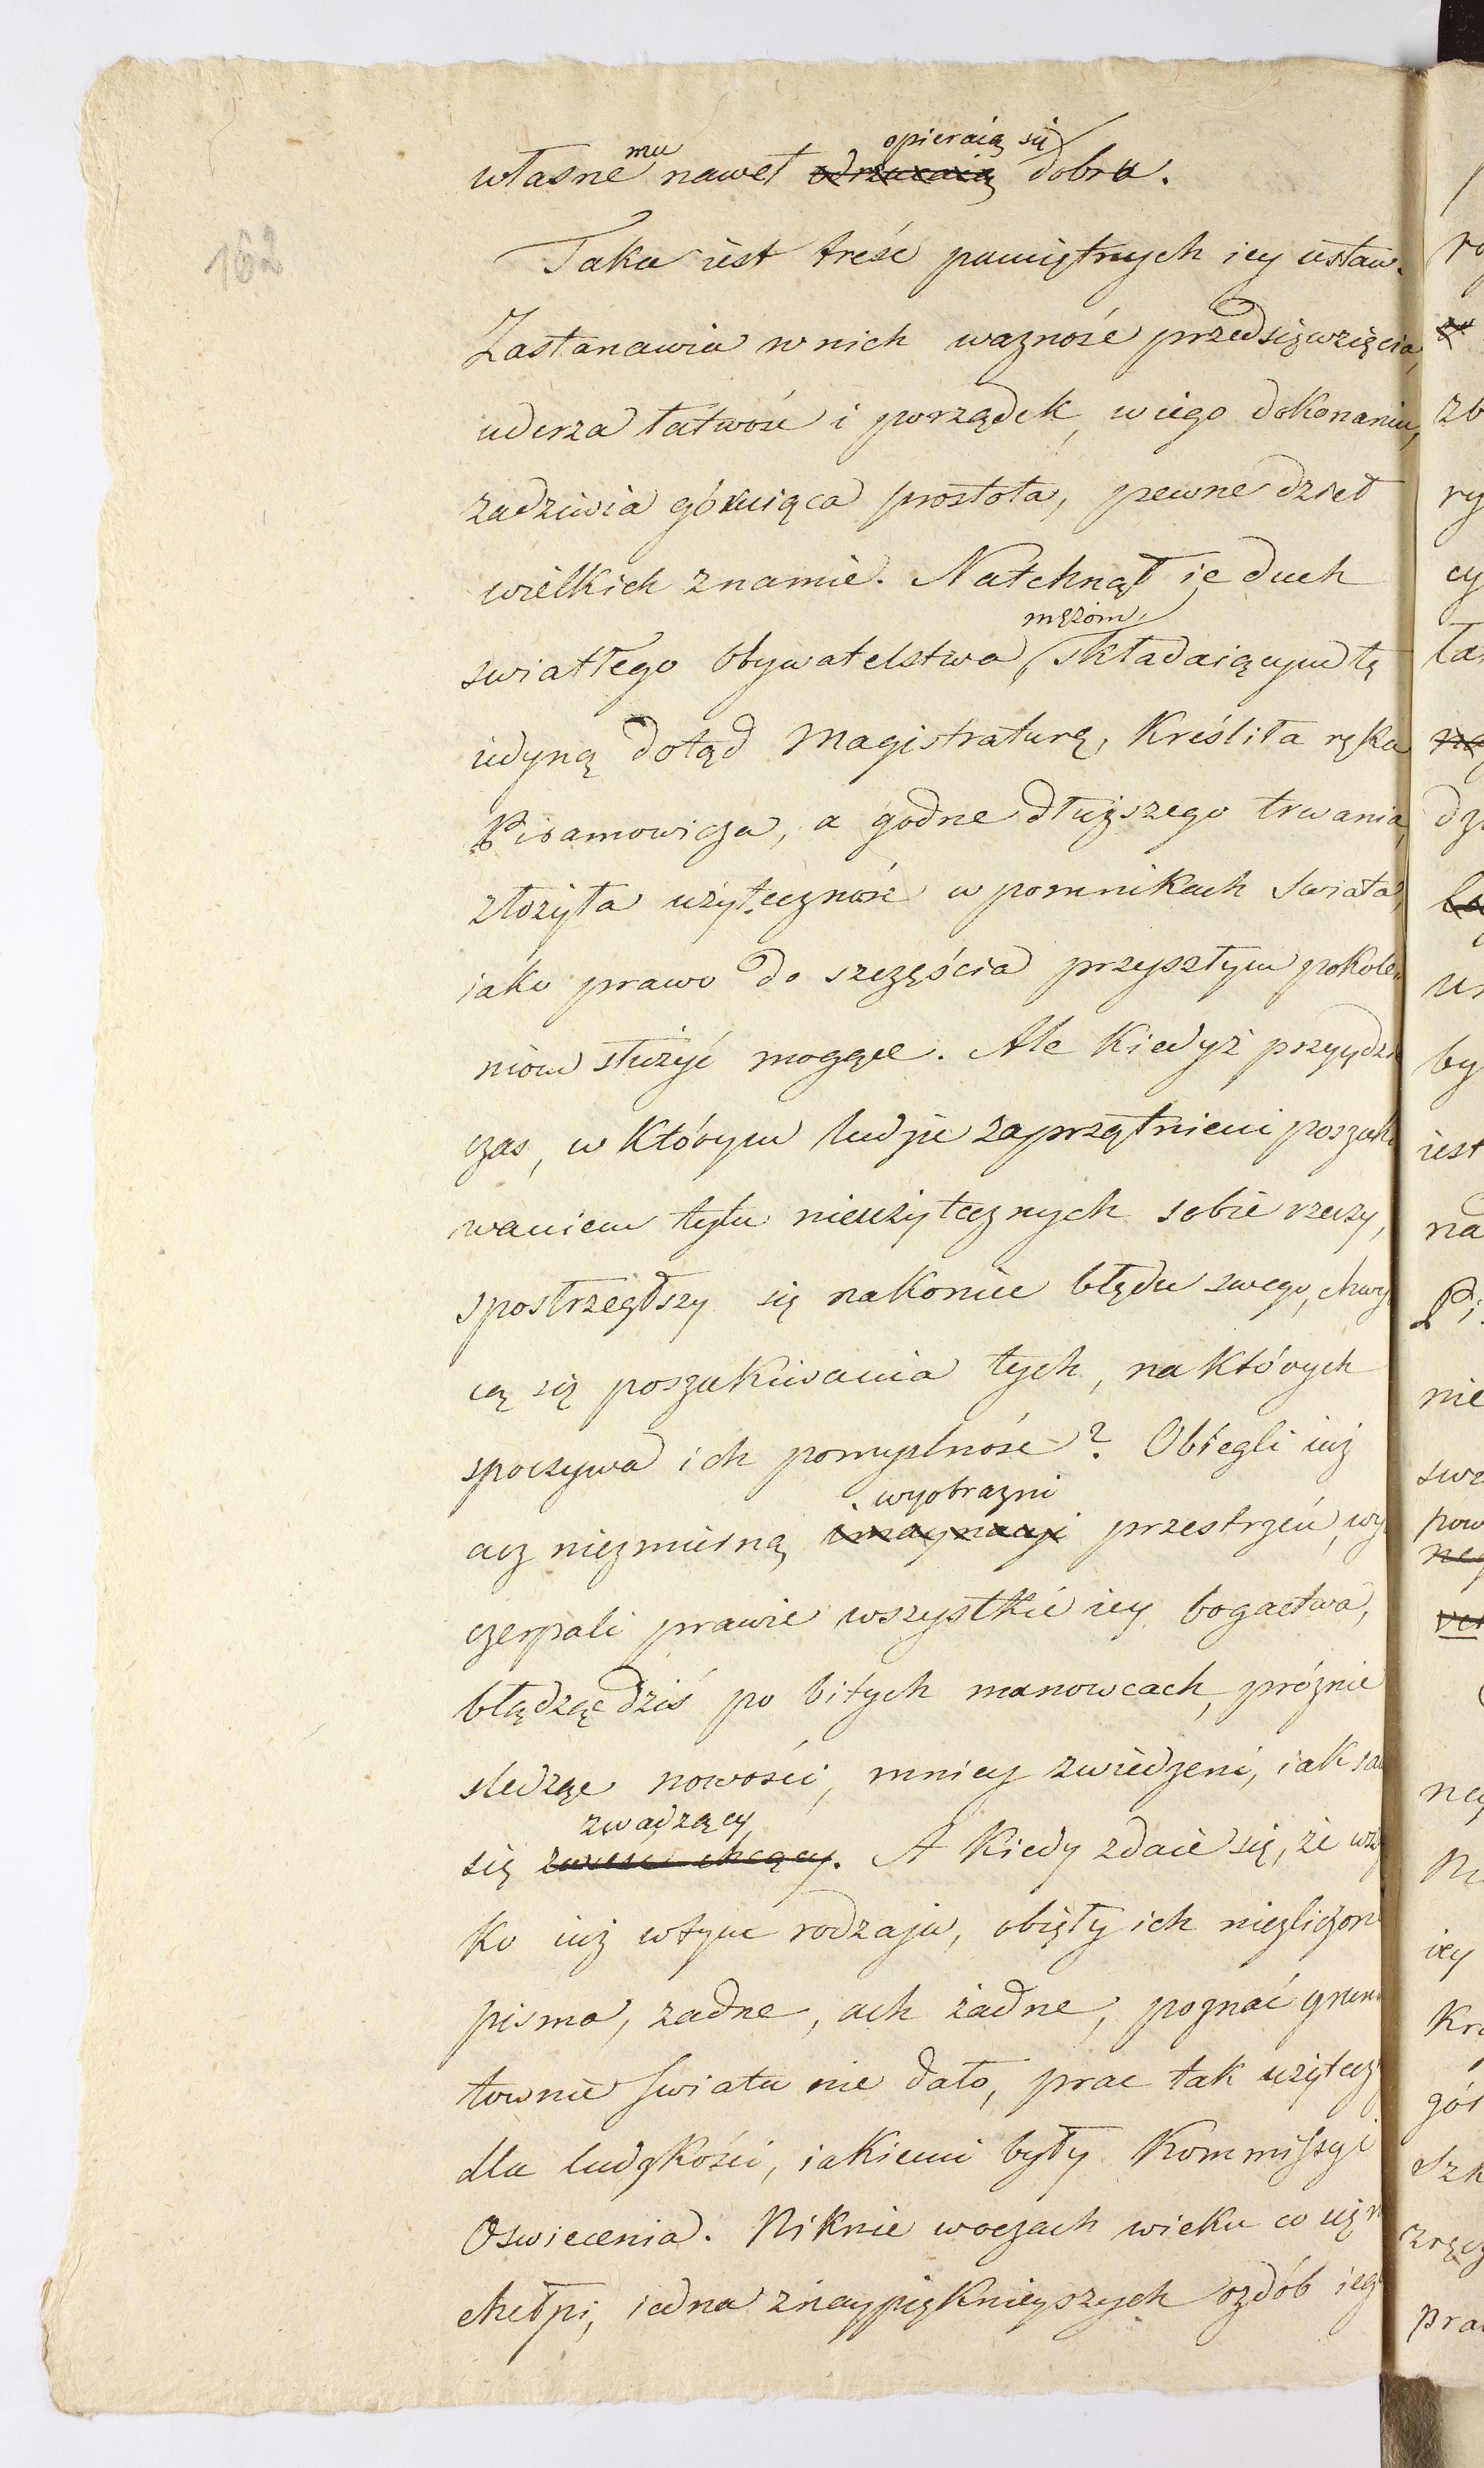 162
własnemu nawet opieraią się dobru.
Taka iest treść pamiętnych iey ustaw.
Zastanawia w nich ważność przedsięwzięcia,
uderza łatwość i porządek, w iego dokonaniu,
zadziwia góruiąca prostota, pewne dzieł
wielkich znamie. Natchnął ie duch
swiatłego obywatelstwa, mężom, składaiącym tę
iedyną dotąd Magistraturę, kreśliła ręka
Piramowicza, a godne dłuższego trwania,
złożyła użyteczność w pomnikach świata,
iako prawo do szczęścia przyszłym pokole
niom służyć mogące. Ale kiedyż przyydzie
czas, w którym ludzie zaprzątnieni poszuki
waniem tylu nieużytecznych sobie rzeczy,
spostrzegłszy się nakoniec błędu swego, chwy
cą się poszukiwania tych, na których
spoczywa ich pomyślność? Obiegli iuż
acz niezmierną wyobrazni imaynacyi przestrzeń, wy
czerpali prawie wszystkie iey bogactwa,
błądząc dziś po bitych manowcach, próżnie
sledząc nowości, mniey zwiedzeni, iak sa
się zwadzący zwieść chcący. A kiedy zdaie się, że wszy
ko iuż w tym rodzaju, obięły ich niezliczon
pisma, żadne, ach żadne, poznać grun
townie swiatu nie dało, prac tak użytecz
dla ludzkości, iakiemi były Kommissyi
Oswiecenia. Niknie w oczach wieku co się n
chełpi, iedna z naypięknieyszych ozdób ieg